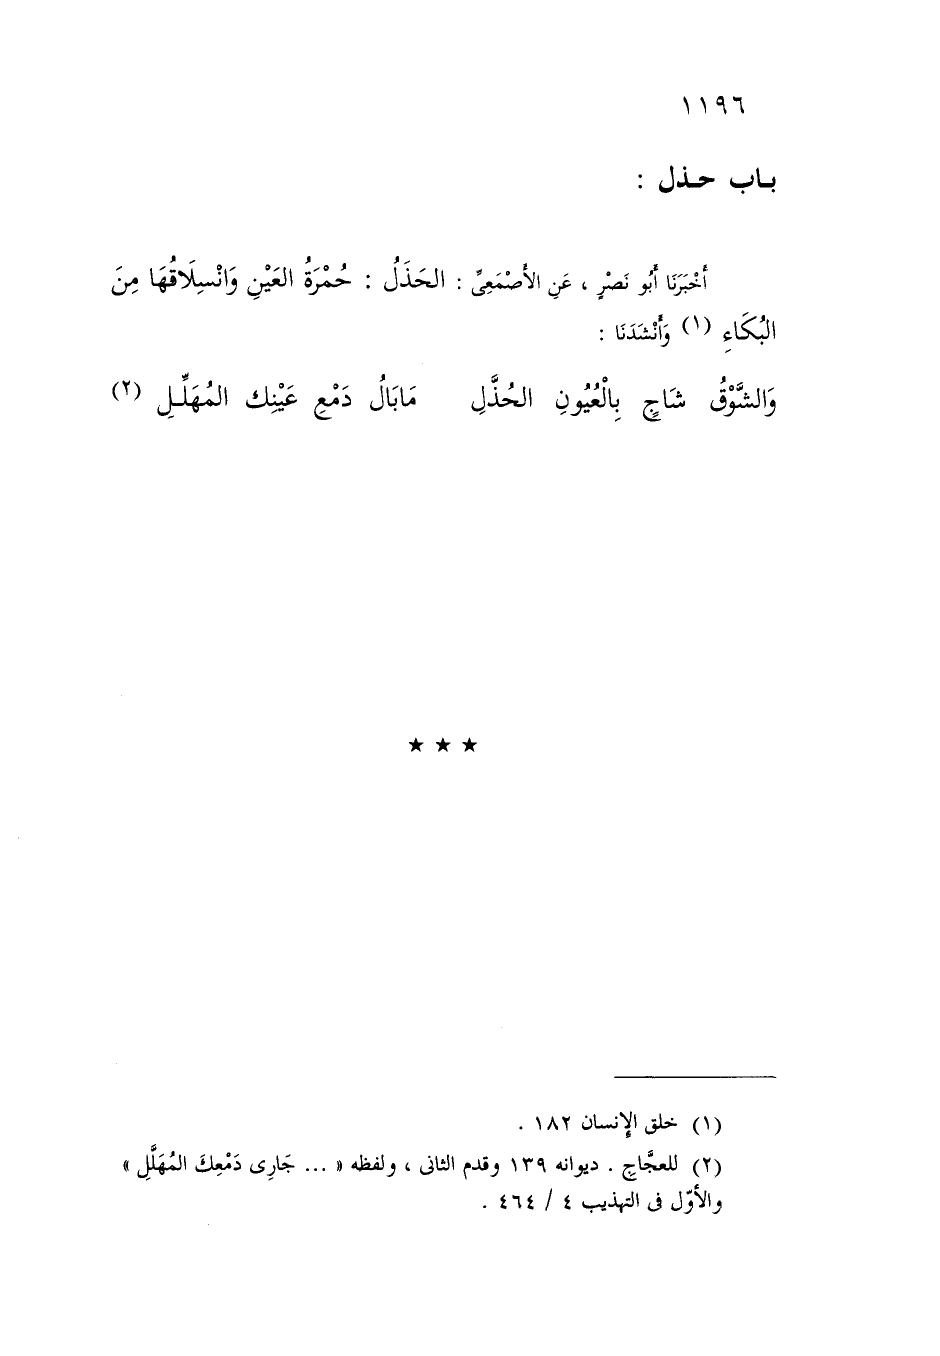 ١١٩٦
بـاب حـذل :
أَخْبَرَنَا أَبُو نَصْرٍ ، عَنِ الأَصْمَعِىِّ : الحَذَلُ : حُمْرَةُ العَيْنِ وَانْسِلَاقُهَا مِنَ
البُكَاءِ (١) وَأَنْشَدَنَا :
وَالشَّوْقُ شَاجٍ بِالْعُيُونِ الحُذَّلِ مَابَالُ دَمْعِ عَيْنِك المُهَلِّـلِ (٢)
★ ★ ★
(١) خلق الإِنسان ١٨٢ .
(٢) للعجَّاجِ . ديوانه ١٣٩ وقدم الثانى ، ولفظه « ... جَارِى دَمْعِكَ المُهَلَّلِ »
والأوّل فى التهذيب ٤ / ٤٦٤ .